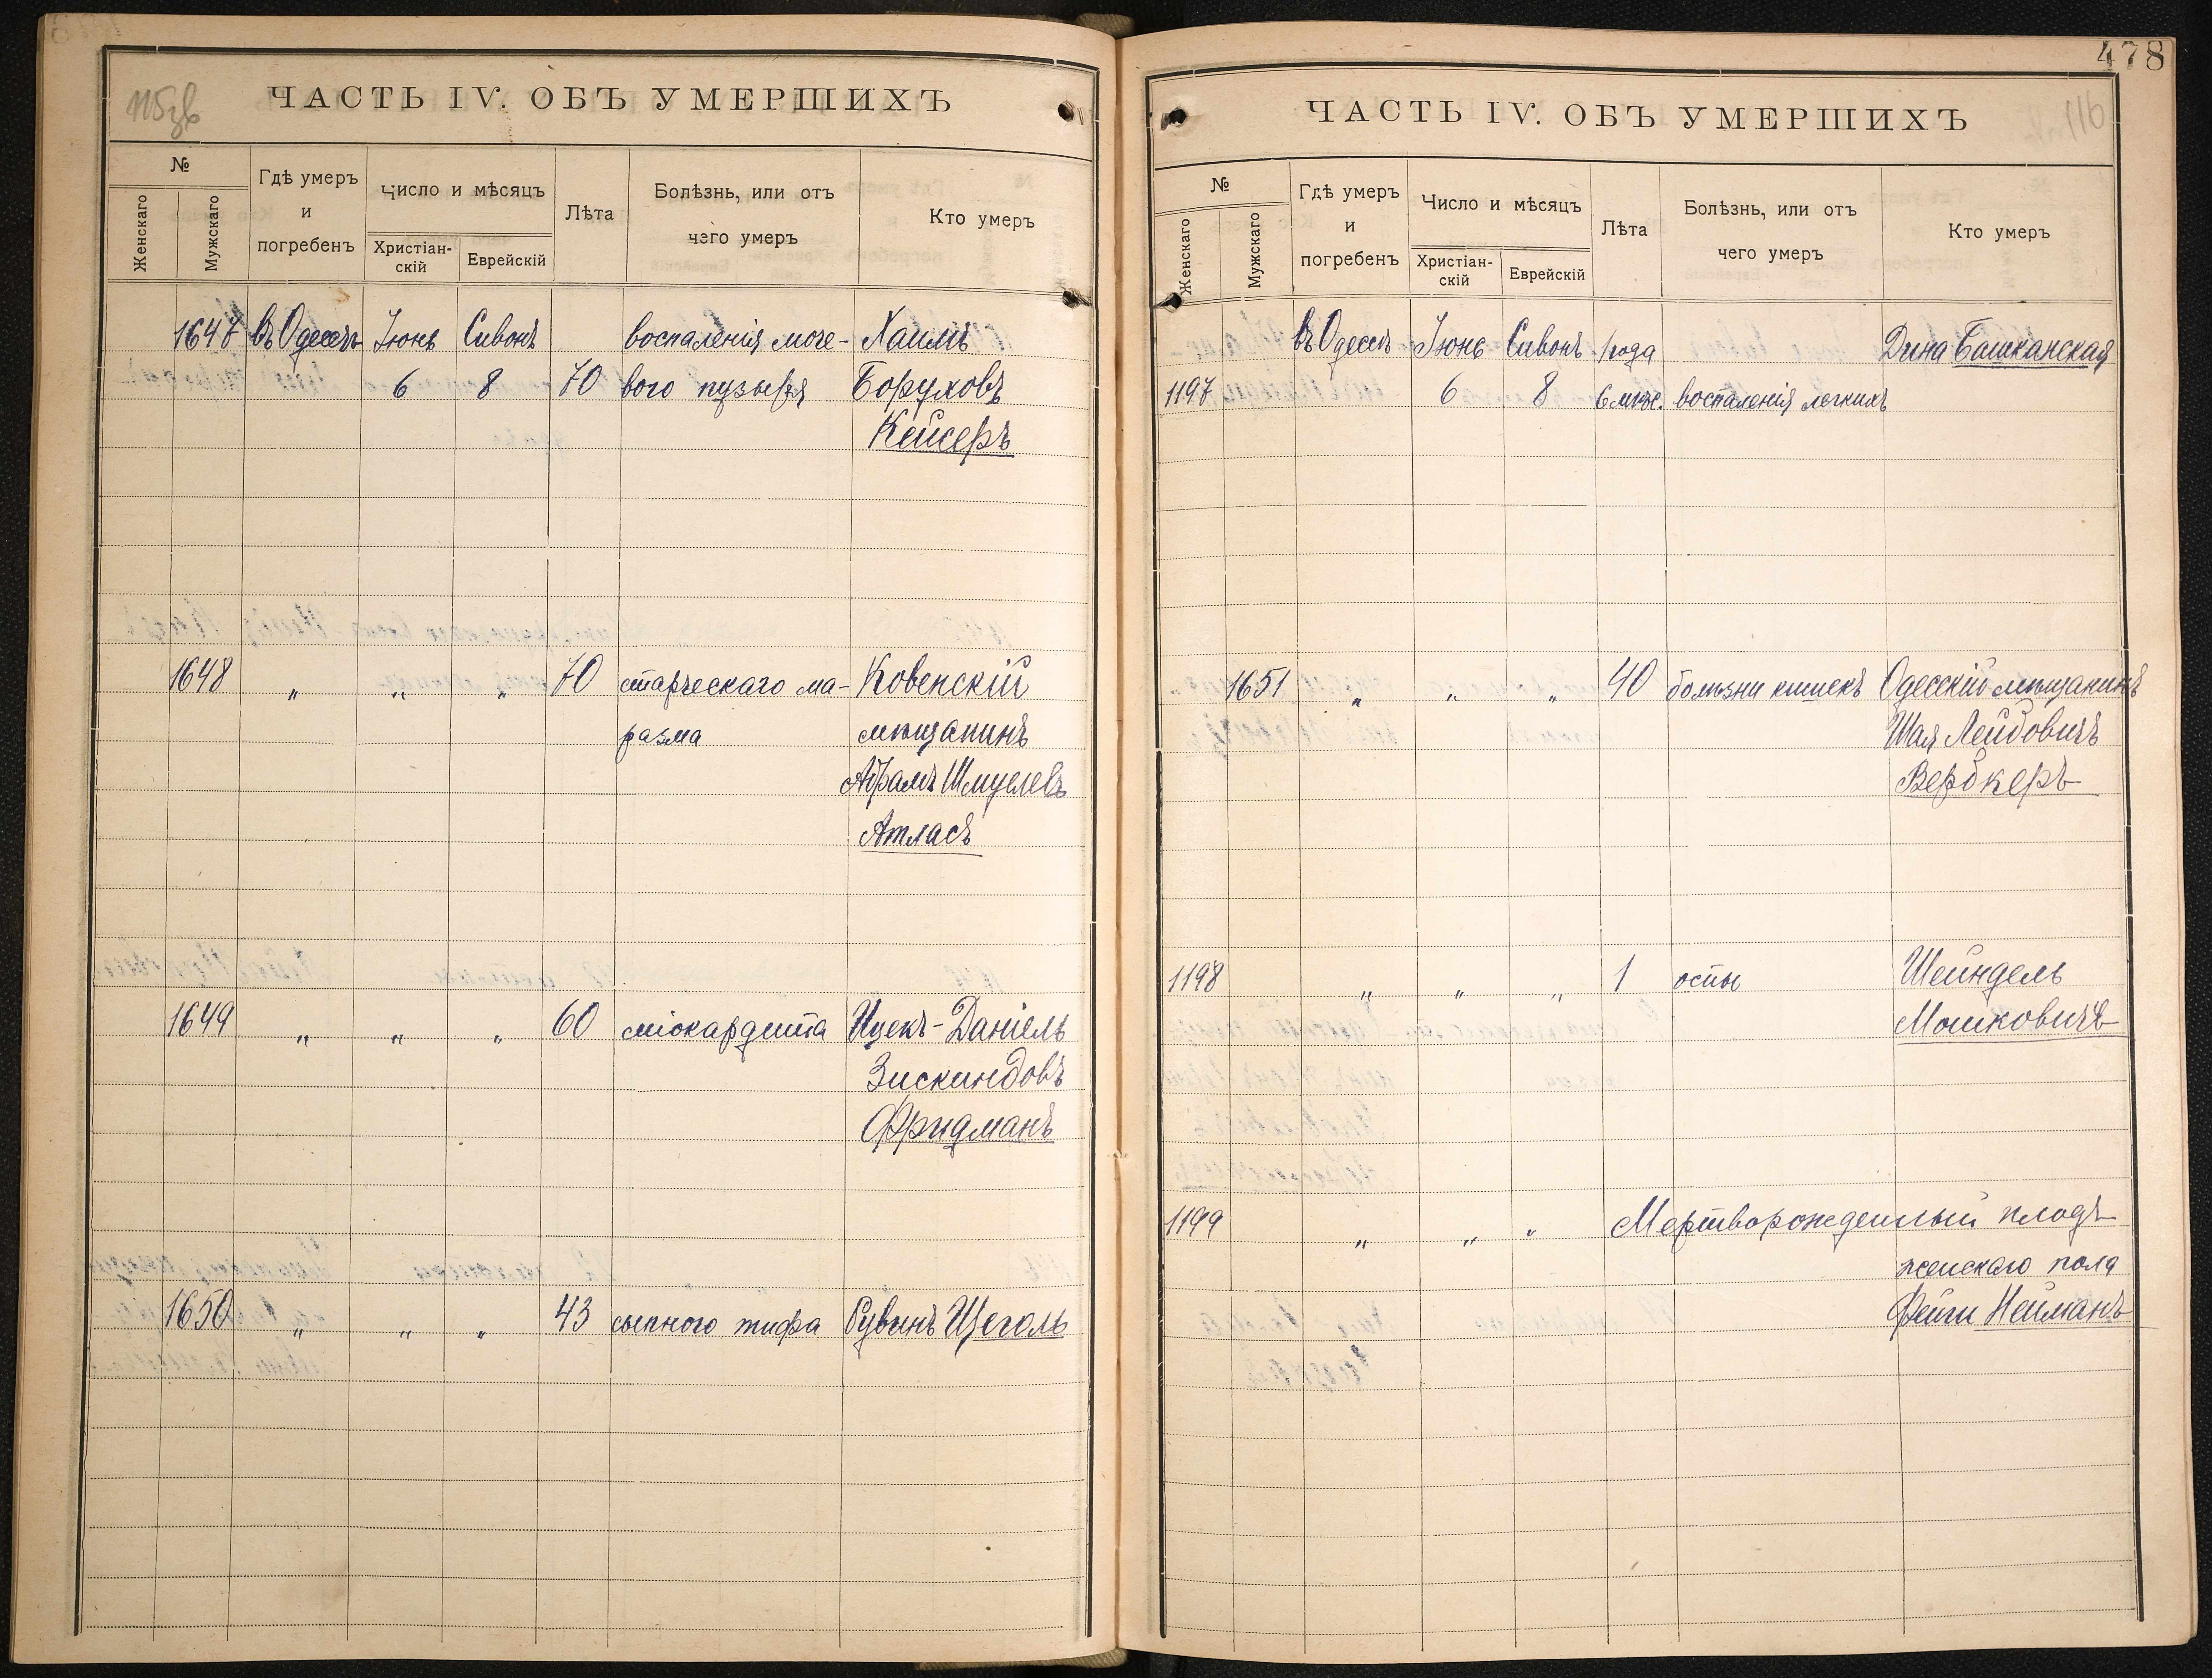 115зв
ЧАСТЬ IV. ОБЪ УМЕРШИХЪ
№
Женскаго
Мужскаго
Гдѣ умеръ
и
погребенъ
Число и мѣсяцъ
Христіан-
скій
Еврейскій
Лѣта
Болѣзнь, или отъ
чего умеръ
Кто умеръ
1647 въ Одессѣ Іюнь Сивонъ воспаленія моче- Хаимъ
6 8 70 вого пузыря Боруховъ
Кейсеръ
1648 „ „ „ 70 старческаго ма- Ковенскій
разма мѣщанинъ
Абрамъ Шмулевъ
Атласъ
1649 „ „ „ 60 міокардита Ицекъ-Даніель
Зискиндовъ
Фридманъ
1650 „ „ „ 43 сыпного тифа Рувинъ Щеголь
478
116
ЧАСТЬ IV. ОБЪ УМЕРШИХЪ
№
Женскаго
Мужскаго
Гдѣ умеръ
и
погребенъ
Число и мѣсяцъ
Христіан-
скій
Еврейскій
Лѣта
Болѣзнь, или отъ
чего умеръ
Кто умеръ
въ Одессѣ Іюнь Сивонъ 1 года Дина Башканская
1197 6 8 6 мѣс. воспаленія легкихъ
1651 „ „ „ 40 болѣзни кишекъ Одесскій мѣщанинъ
Шая Лейбовичъ
Верокеръ
1198 „ „ „ 1 оспы Шейндель
Мошковичъ
1199 „ „ „ Мертворожденный плодъ
женскаго пола
Фейги Нейманъ